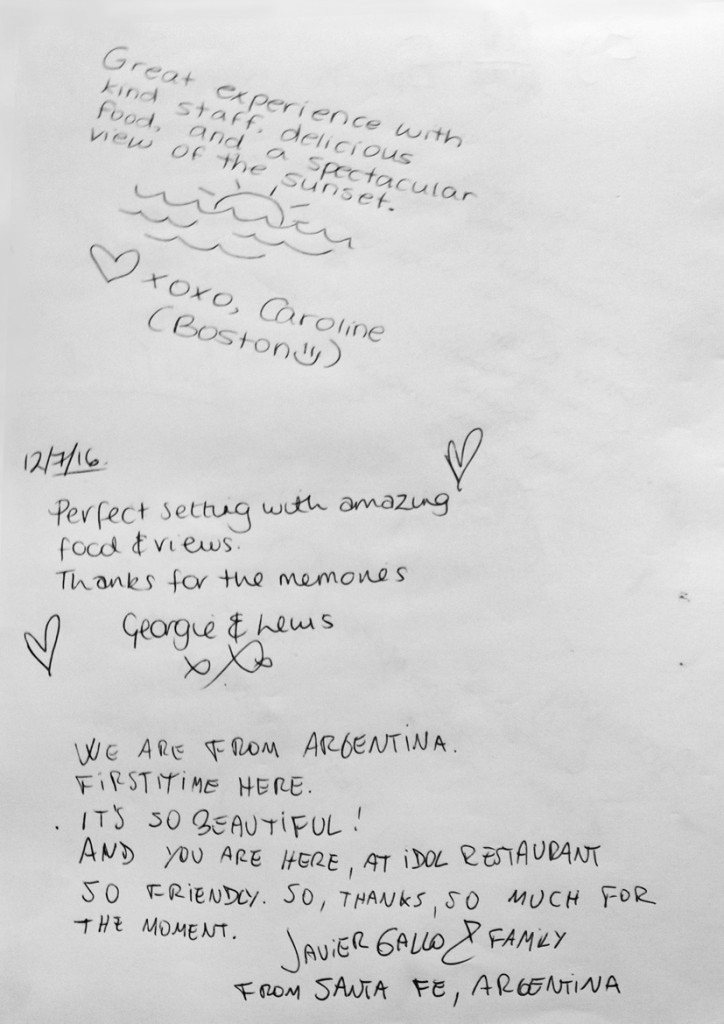 Great experience with
kind staff, delicious
food, and a spectacular
view of the sunset.
xoxo, Caroline
(Boston)
12/7/16
Perfect setting with amazing
food & views.
Thanks for the memories
Georgie & Lewis
xx
WE ARE FROM ARGENTINA.
FIRST TIME HERE.
IT'S SO BEAUTIFUL!
AND YOU ARE HERE, AT IDOL RESTAURANT
SO FRIENDLY. SO, THANKS, SO MUCH FOR
THE MOMENT.
JAVIER GALLO & FAMILY
FROM SANTA FE, ARGENTINA